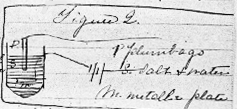 Figure 2.
P plumbago
S. Salt & water
M. metallic plate
P
S
m